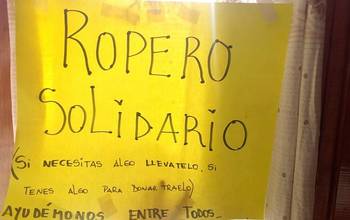 ROPERO
SOLiDARiO
(Si NECESITAS ALGO LLEVATELO, Si
TENES ALGO PARA DONAR TRAELO)
AYUDÉMONOS ENTRE TODOS_